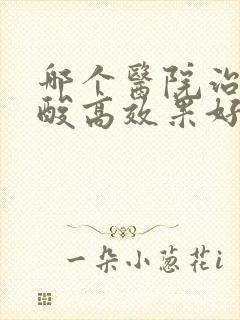 那个醫院治
酸高效果好
一朵小葱花i